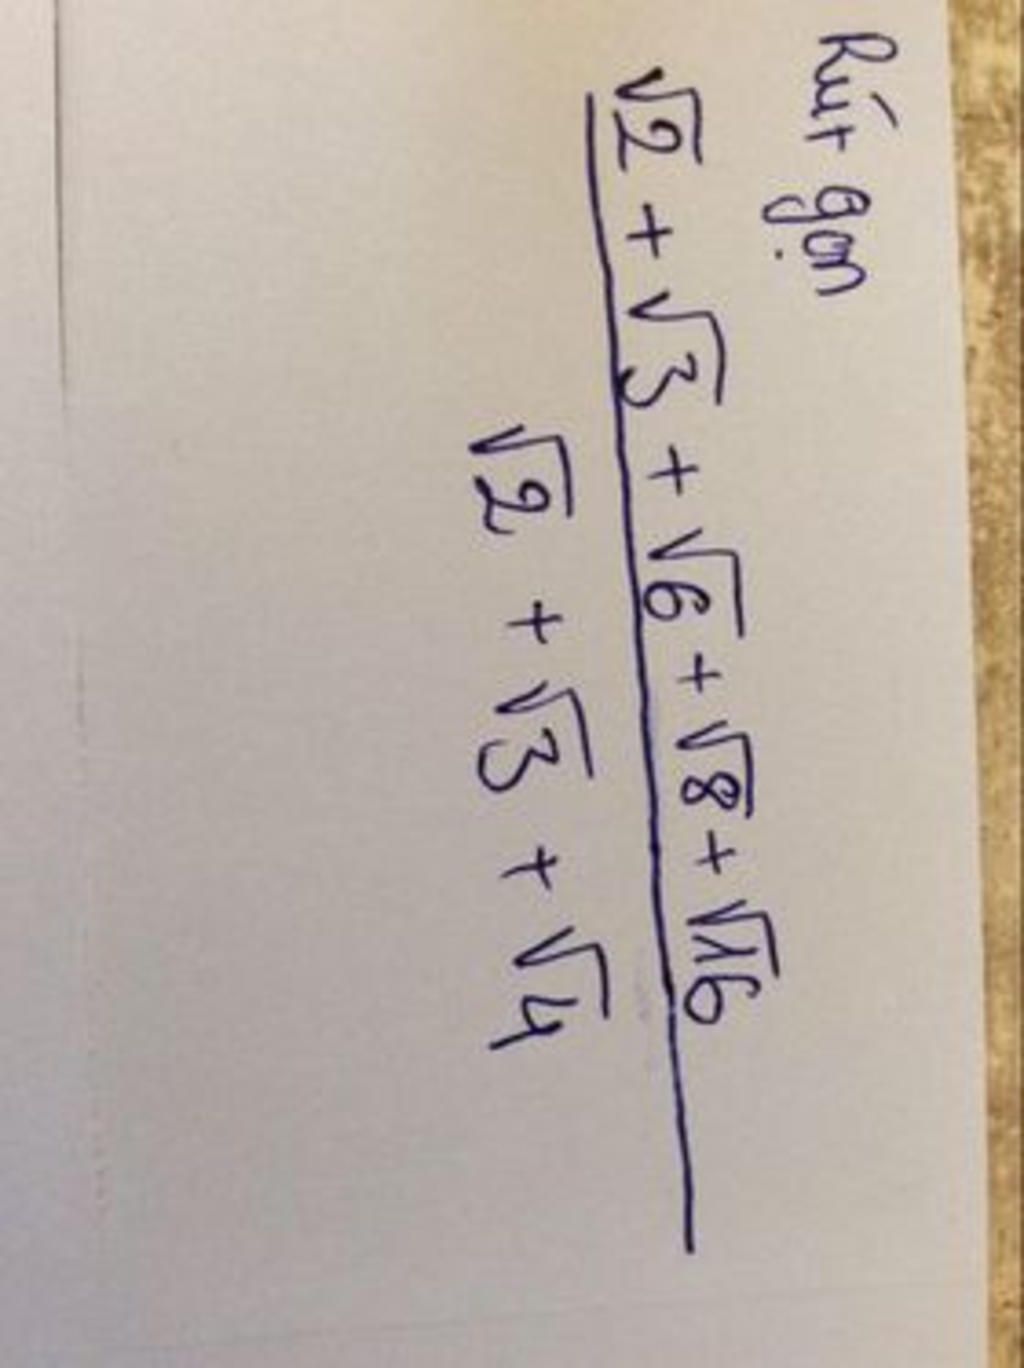 Rút gọn
√2 + √3 + √6 + √8 + √16
√2 + √3 + √4